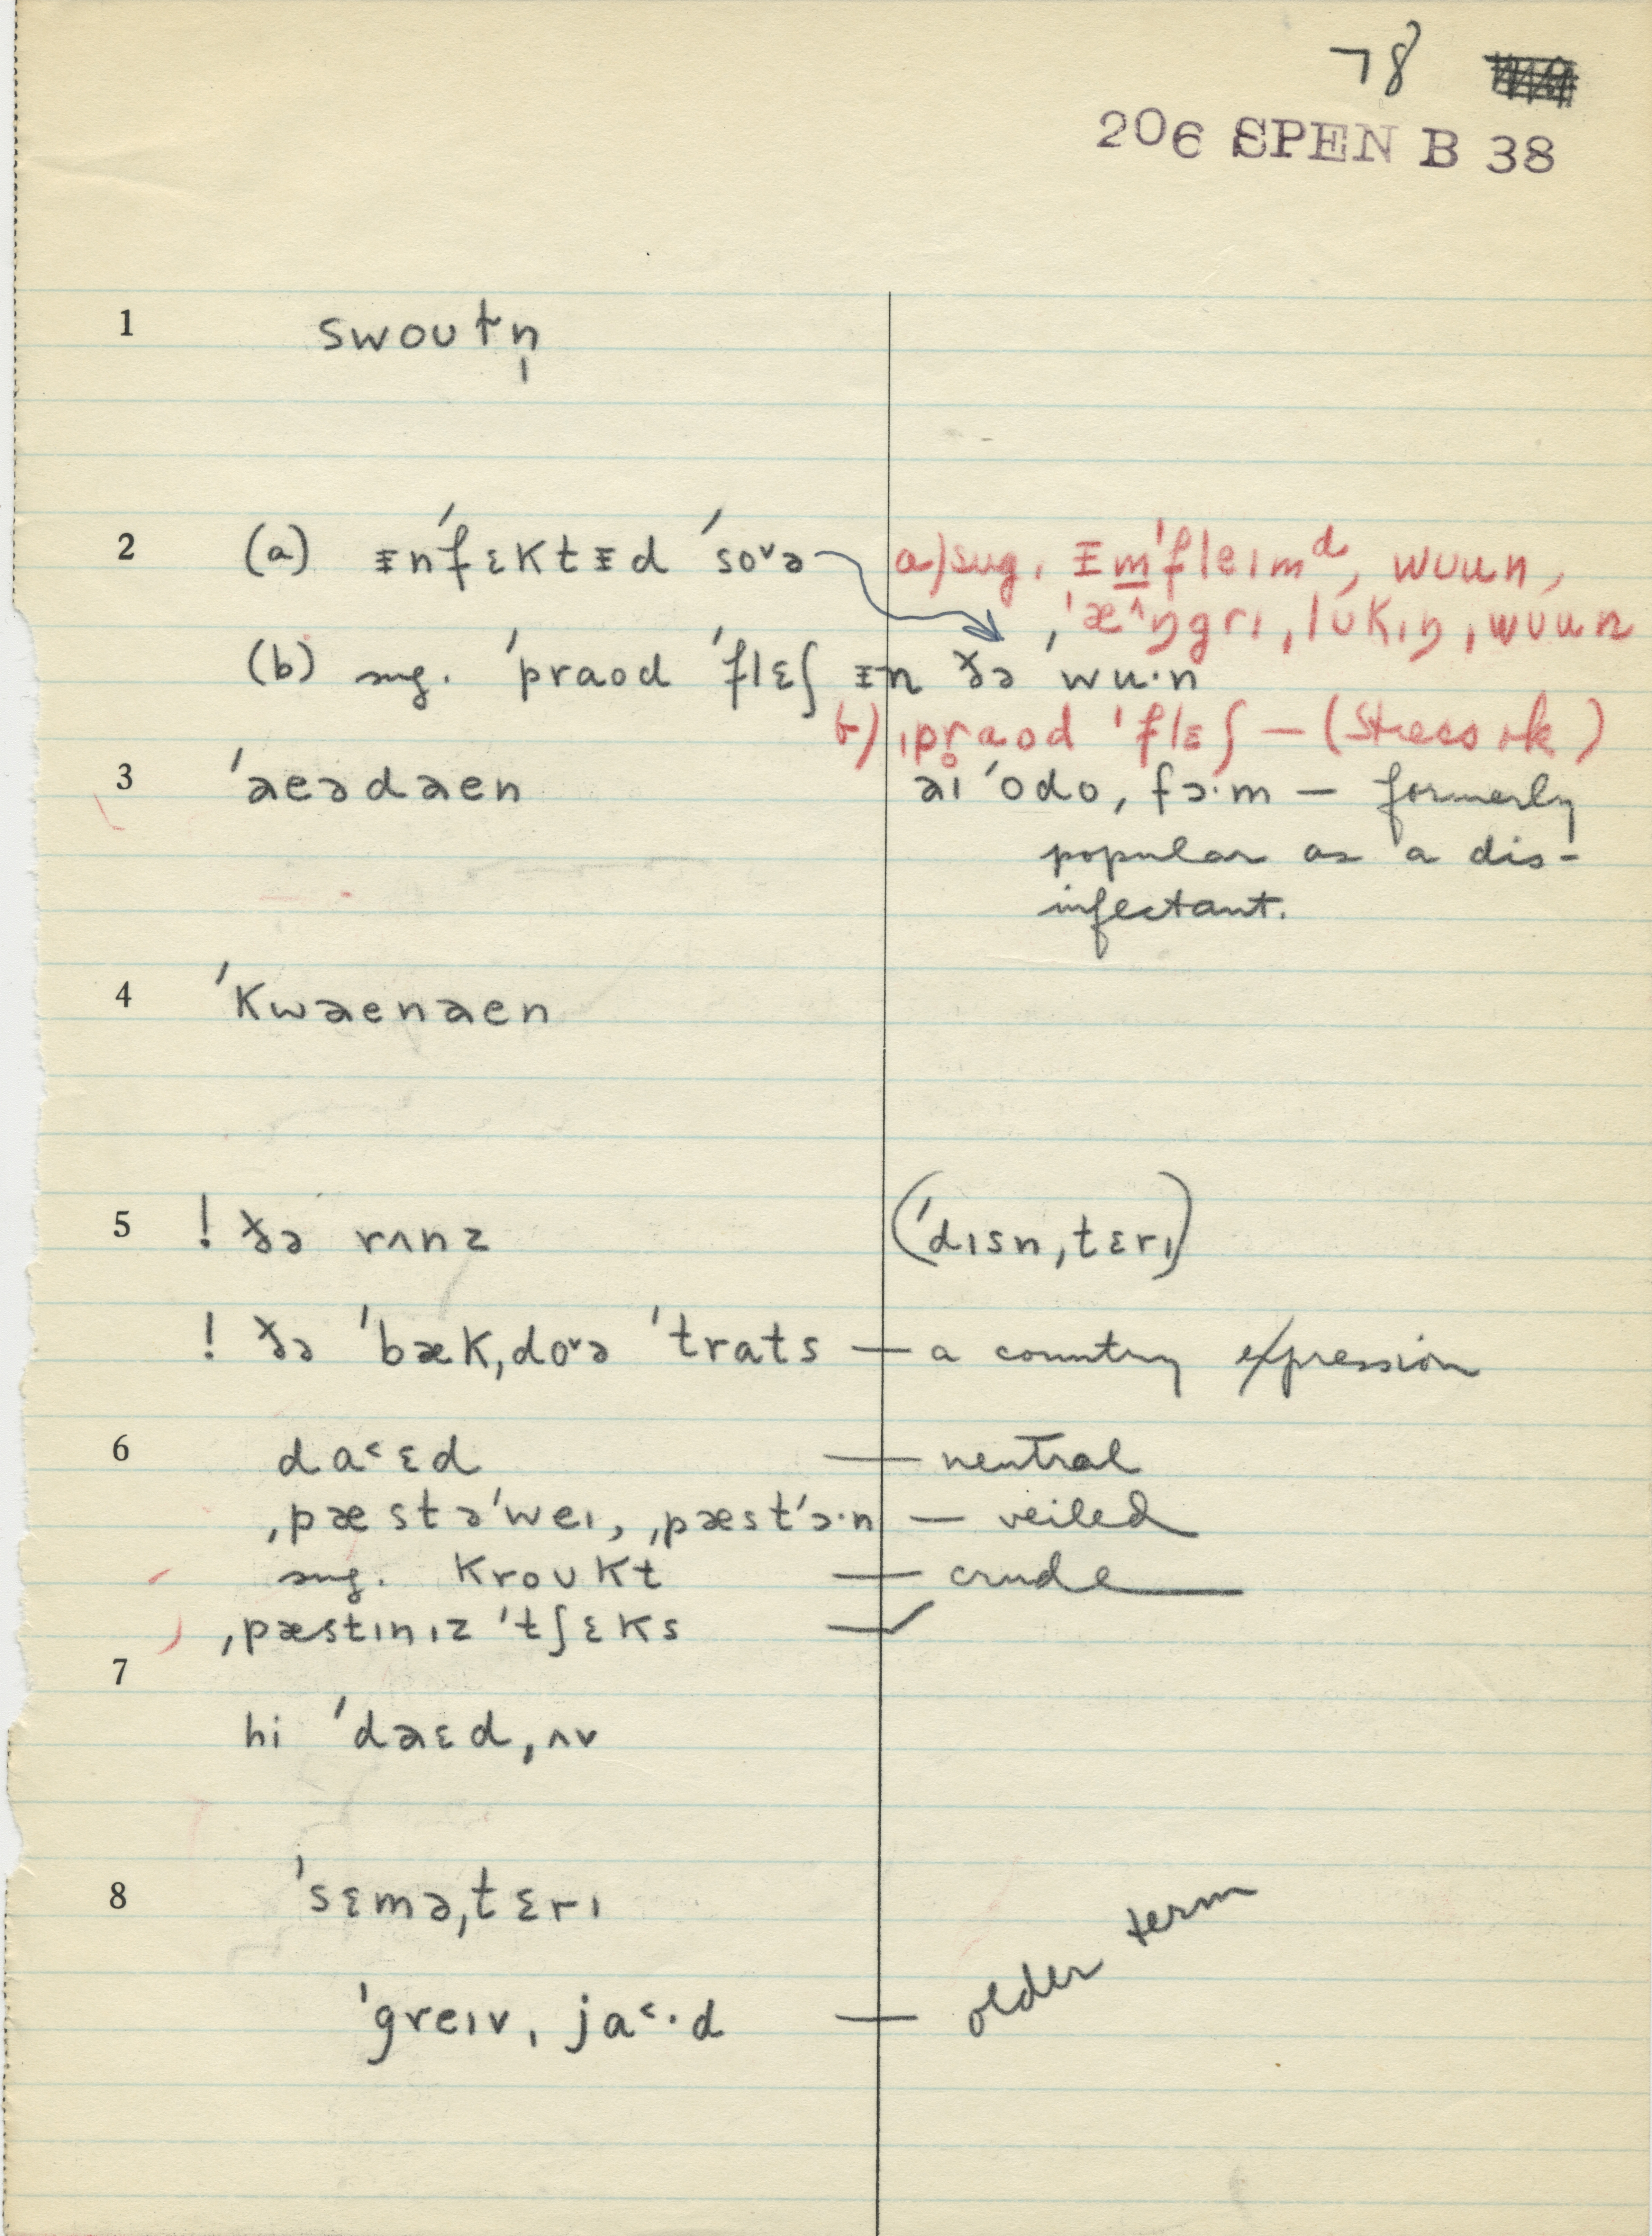 78
206 SPEN B 38
1 swoʊtn̩
2 (a) ᵻnˈfɛktᵻd ˈso˅ə a) sug. ᵻm̲ˈfleɪmᵈ, wuun,
ˌˈæ^ŋgrɪ ˌlʊkɪŋ ˌwuun
(b) sug. ˈpraod ˈflɛʃ ᵻn ðə ˈwu·n
b) ˌpr̥aod ˈflɛʃ — (stress ok)
3 ˈaeədaen aɪˈodoˌfɔ·m — formerly
popular as a dis-
infectant.
4 ˈkwaenaen
5 ! ðə rʌnz (ˈdɪsnˌtɛrɪ)
! ðə ˈbækˌdo˅ə ˈtrats — a country expression
6 da˂ɛd — neutral
ˌpæstəˈweɪ, ˌpæstˈɔ·n — veiled
sug. kroʊkt — crude
ˌpæstɪnɪz ˈtʃɛks — ✓
7
hi ˈdaɛdˌʌv
8 ˈsɛməˌtɛrɪ
ˈgreɪvˌja˂·d — older term